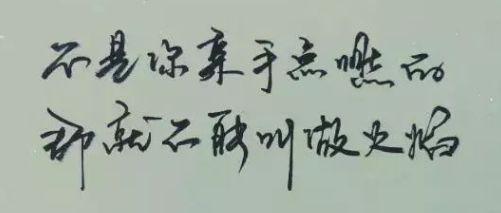 不是你亲手点燃的
那就不能叫做火焰